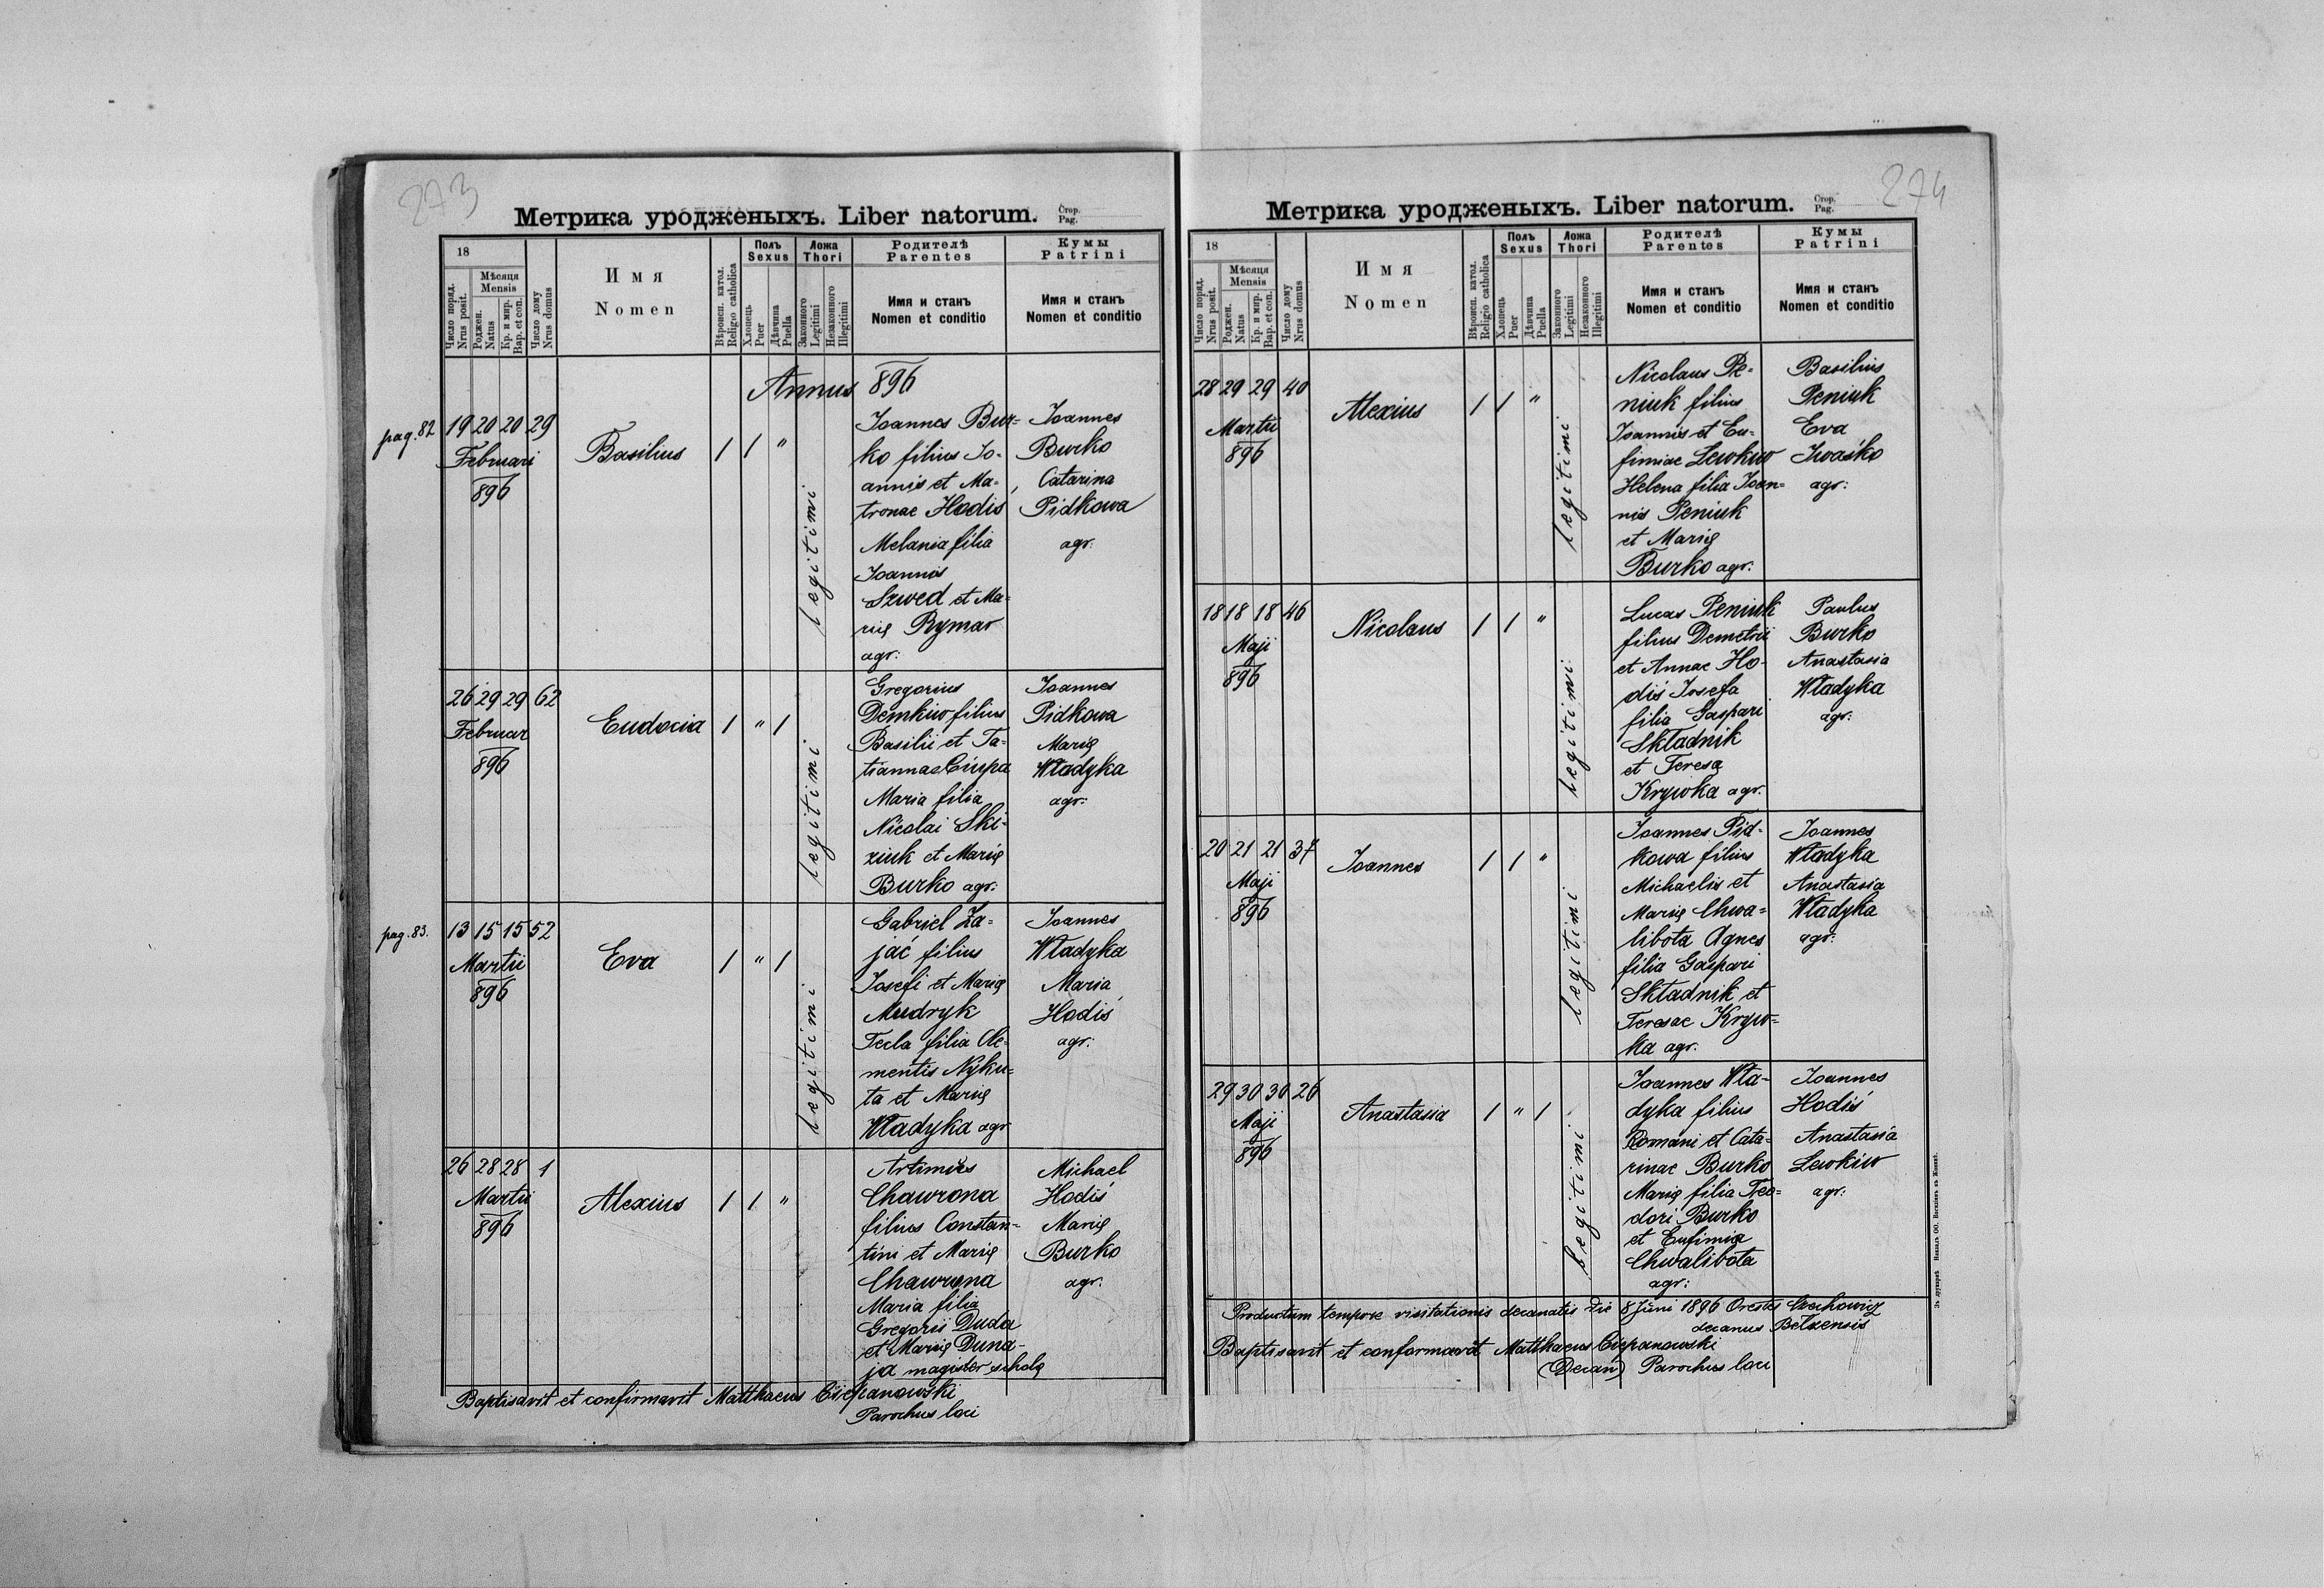 273
Метрика уродженыхъ. Liber natorum. Стор. Pag.
18
Число поряд. Nrus posit.
Мѣсяця Mensis
Роджен. Natus
Кр. и мир. Bap. et con.
Число дому Nrus domus
Имя
Nomen
Вѣроисп. катол. Religio catholica
Полъ Sexus
Хлопець Puer
Дѣвчина Puella
Ложа Thori
Законного Legitimi
Незаконного Illegitimi
Родителѣ Parentes
Имя и станъ
Nomen et conditio
Кумы Patrini
Имя и станъ
Nomen et conditio
Annus 896
pag. 82
19 20 20 29
Februari
896
Basilius
1 1 "
legitimi
Ioannes Bur-
ko filius Io-
annis et Ma-
tronae Hodis
Melania filia
Ioannis
Szwed et Ma-
rię Rymar
agr:
Ioannes
Burko
Catarina
Pidkowa
agr:
26 29 29 62
Februar
896
Eudocia
1 " 1
legitimi
Gregorius
Demkiw filius
Basilii et Ta-
tiannae Ciupa
Maria filia
Nicolai Ski-
ziuk et Marię
Burko agr:
Ioannes
Pidkowa
Marię
Władyka
agr:
pag. 83.
13 15 15 52
Martii
896
Eva
1 " 1
legitimi
Gabriel Za-
jać filius
Iosefi et Marię
Mudryk
Tecla filia Cle-
mentis Nyku-
ta et Marię
Władyka agr
Ioannes
Władyka
Maria
Hodiś
agr:
26 28 28 1
Martii
896
Alexius
1 1 "
Artimies
Chawrona
filius Constan-
tini et Marię
Chawrona
Maria filia
Gregorii Duda
et Marię Duna-
ja magister scholę
Michael
Hodiś
Marię
Burko
agr:
Baptisavit et confirmavit Matthaeus Ciepanowski
Parochus loci
274
Метрика уродженыхъ. Liber natorum. Стор. Pag.
18
Число поряд. Nrus posit.
Мѣсяця Mensis
Роджен. Natus
Кр. и мир. Bap. et con.
Число дому Nrus domus
Имя
Nomen
Вѣроисп. катол. Religio catholica
Полъ Sexus
Хлопець Puer
Дѣвчина Puella
Ложа Thori
Законного Legitimi
Незаконного Illegitimi
Родителѣ Parentes
Имя и станъ
Nomen et conditio
Кумы Patrini
Имя и станъ
Nomen et conditio
28 29 29 40
Martii
896
Alexius
1 1 "
legitimi
Nicolaus Pe-
niuk filius
Ioannis et Eu-
fimiae Lewkiw
Helena filia Ioan-
nis Peniuk
et Marię
Burko agr:
Basilius
Peniuk
Eva
Iwaśko
agr:
18 18 18 46
Maji
896
Nicolaus
1 1 "
legitimi
Lucas Peniuk
filius Demetrii
et Annae Ho-
diś Iosefa
filia Gaspari
Składnik
et Teresa
Krywka agr.
Paulus
Burko
Anastasia
Władyka
agr:
20 21 21 37
Maji
896
Ioannes
1 1 "
legitimi
Ioannes Pid-
kowa filius
Michaelis et
Marię Chwa-
libota Agnes
filia Gaspari
Składnik et
Teresae Kryw-
ka agr.
Ioannes
Władyka
Anastasia
Władyka
agr:
29 30 30 26
Maji
896
Anastasia
1 " 1
legitimi
Ioannes Wła-
dyka filius
Romani et Cata-
rinae Burko
Marię filia Teo-
dori Burko
et Eufimia
Chwalibota
agr:
Ioannes
Hodiś
Anastasia
Lewkiw
agr:
Productum tempore visitationis decanatis die 8 Juni 1896 Orestes
decanus Belzensis
Baptisavit et conformavit Matthaeus Ciepanowski
(Decan) Parochus loci